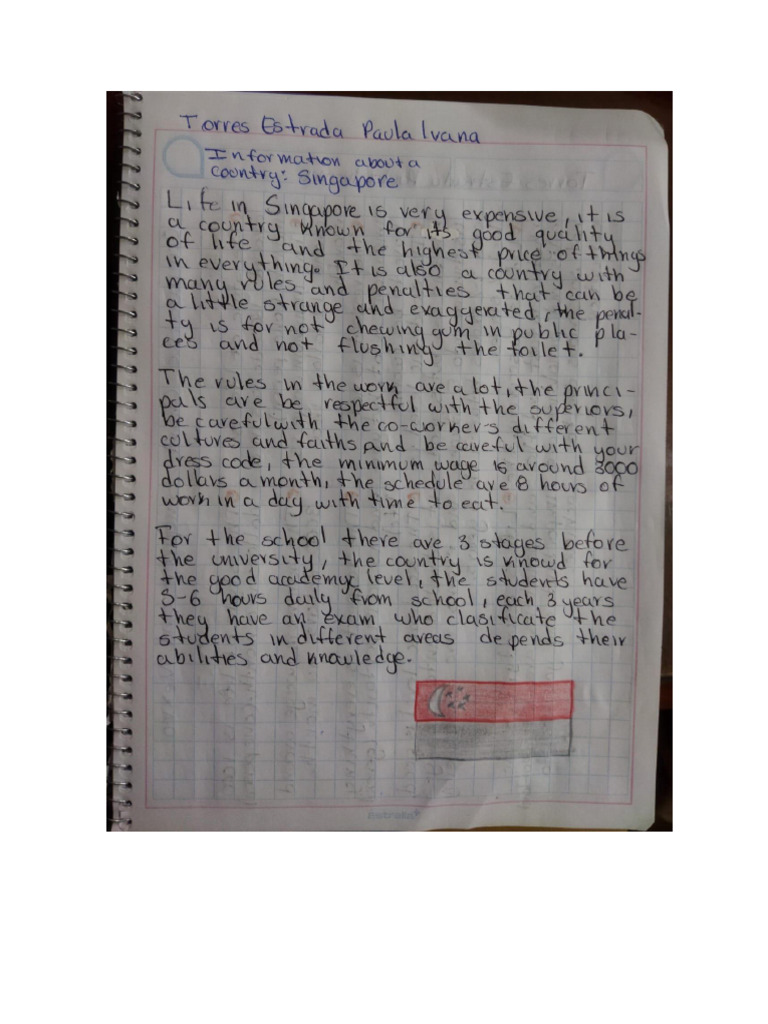 Torres Estrada Paula Ivana
Information about a
country: Singapore
Life in Singapore is very expensive, it is
a country known for its good quality
of life and the highest price of things
in everything. It is also a country with
many rules and penalties that can be
a little strange and exaggerated, the penal-
ty is for not chewing gum in public pla-
ces and not flushing the toilet.
The rules in the work are a lot, the princi-
pals are be respectful with the superiors,
be careful with the co-workers different
cultures and faiths and be careful with your
dress code, the minimum wage is around 3000
dollars a month, the schedule are 8 hours of
work in a day with time to eat.
For the school there are 3 stages before
the university, the country is knowd for
the good academyc level, the students have
5-6 hours daily from school, each 3 years
they have an exam who clasificate the
students in different areas depends their
abilities and knowledge.